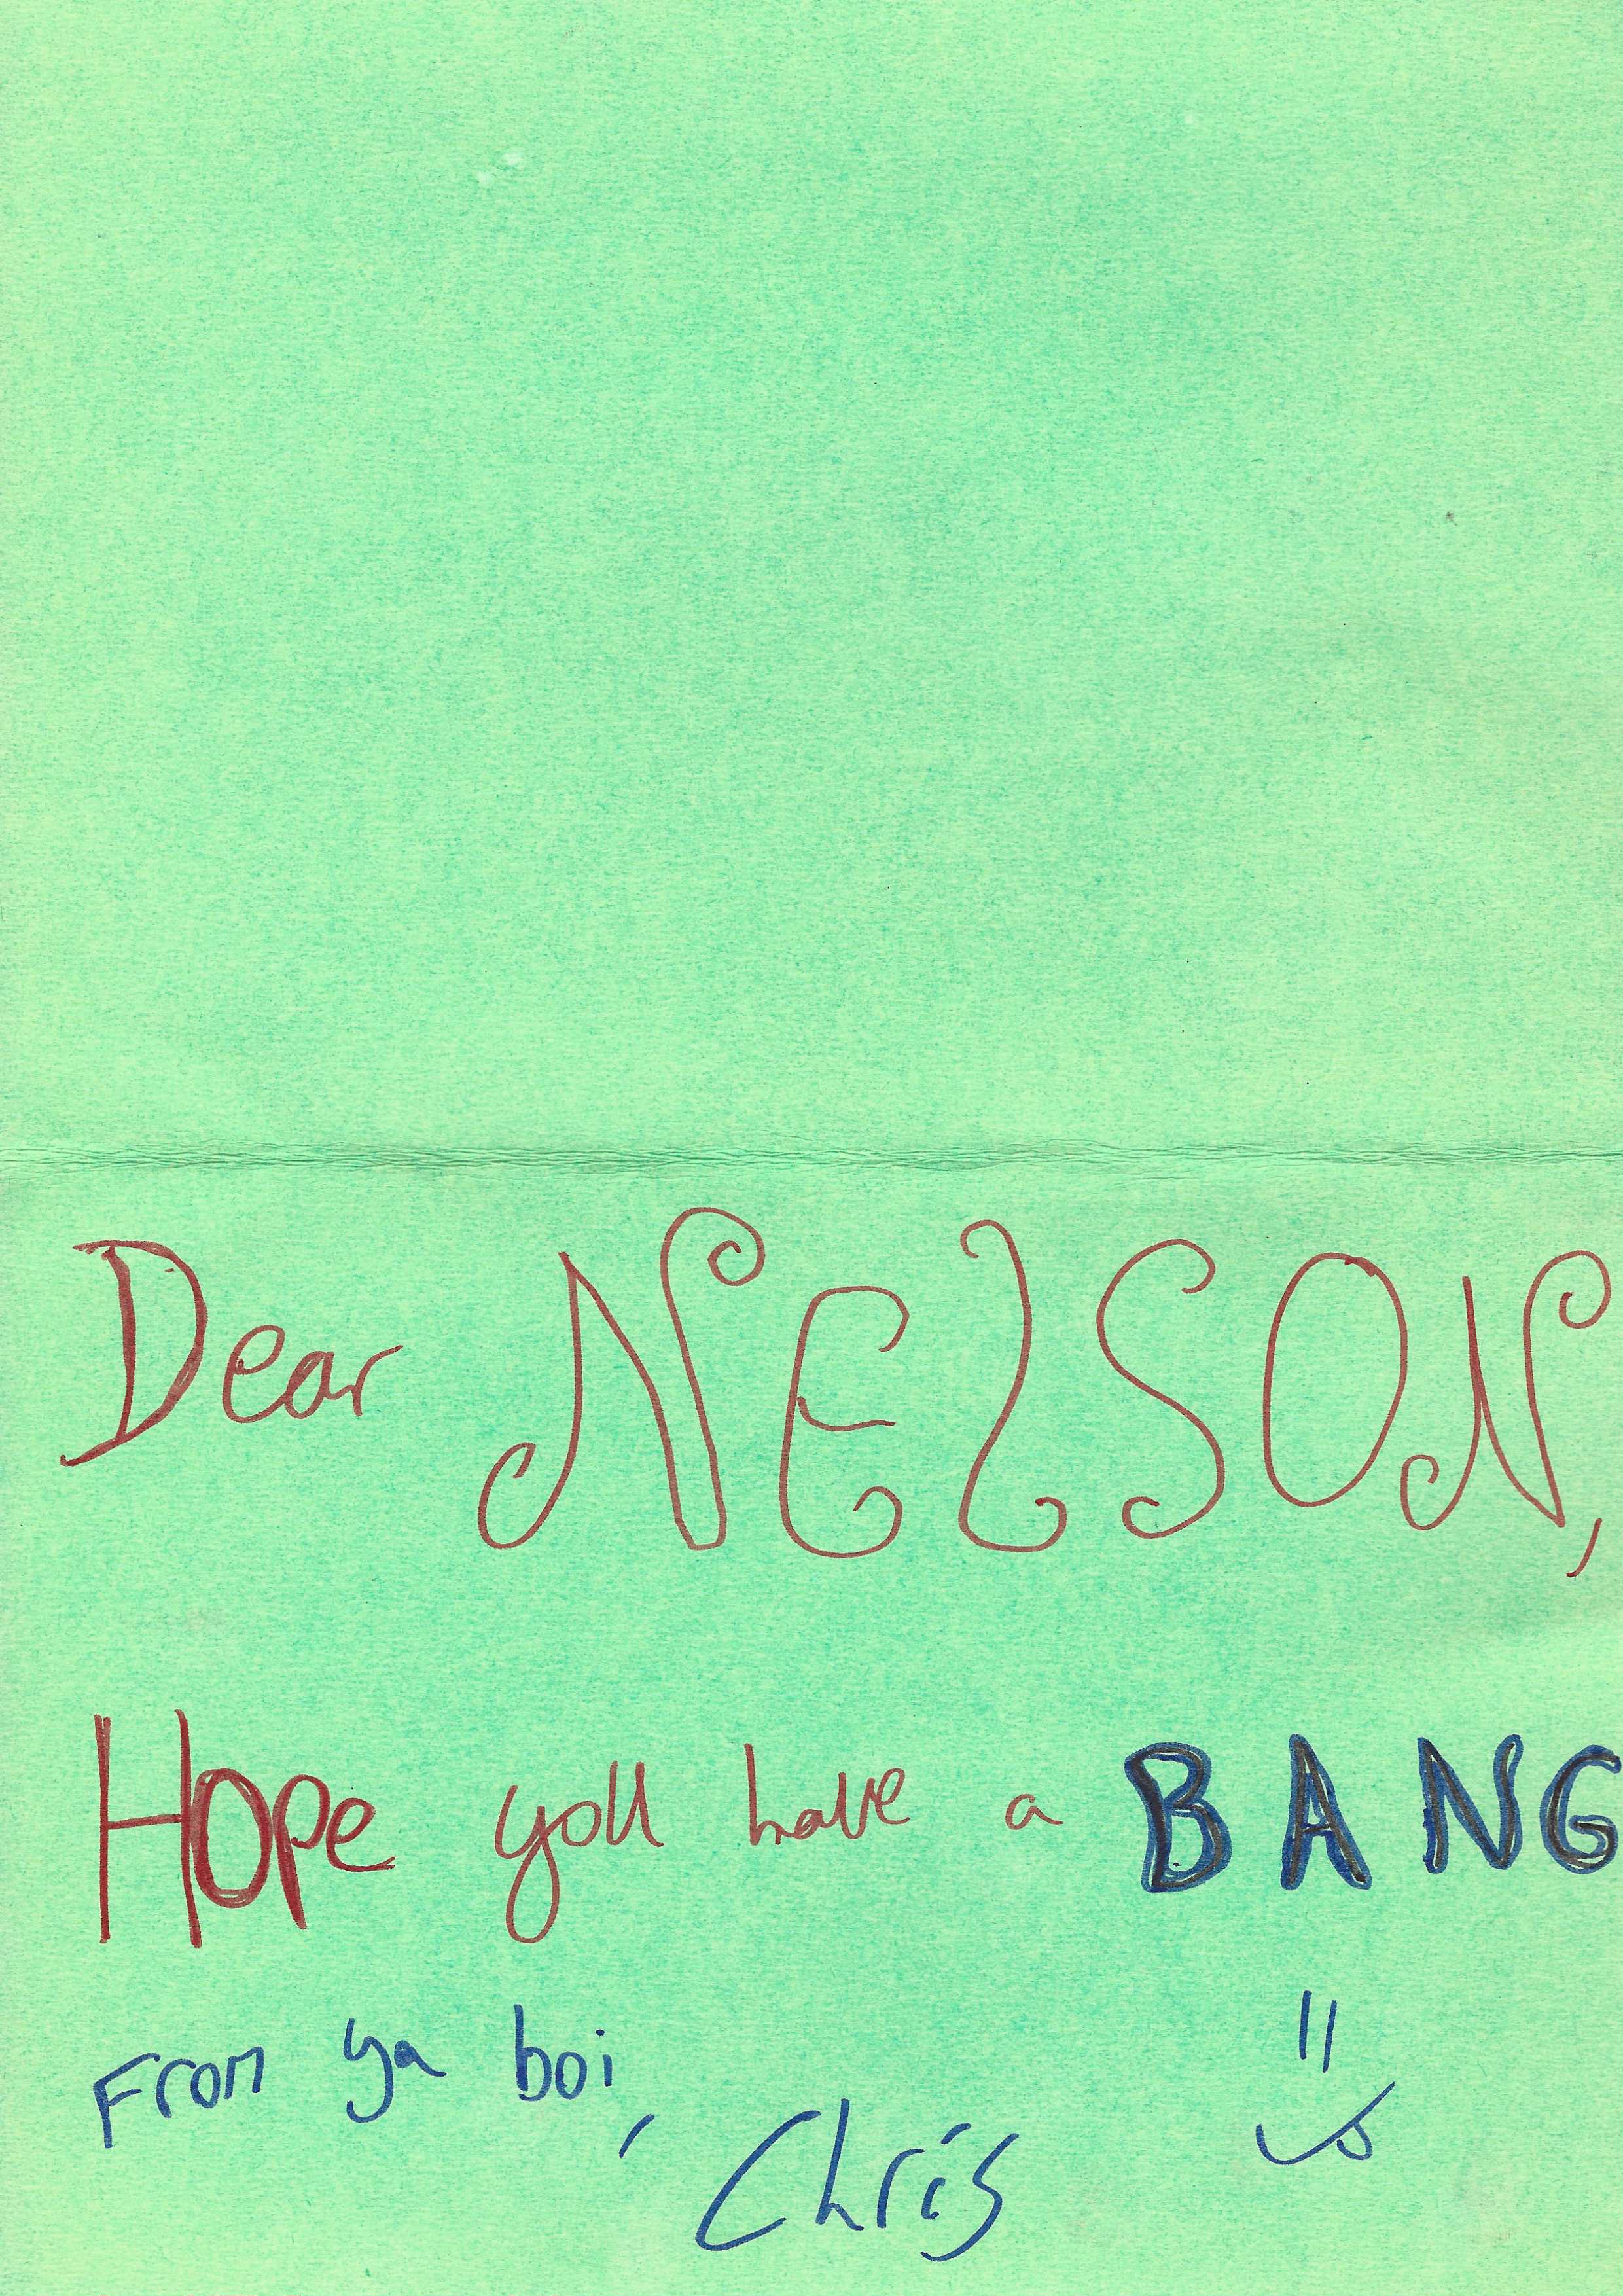 Dear NELSON,
Hope you have a BANG
From ya boi,
Chris